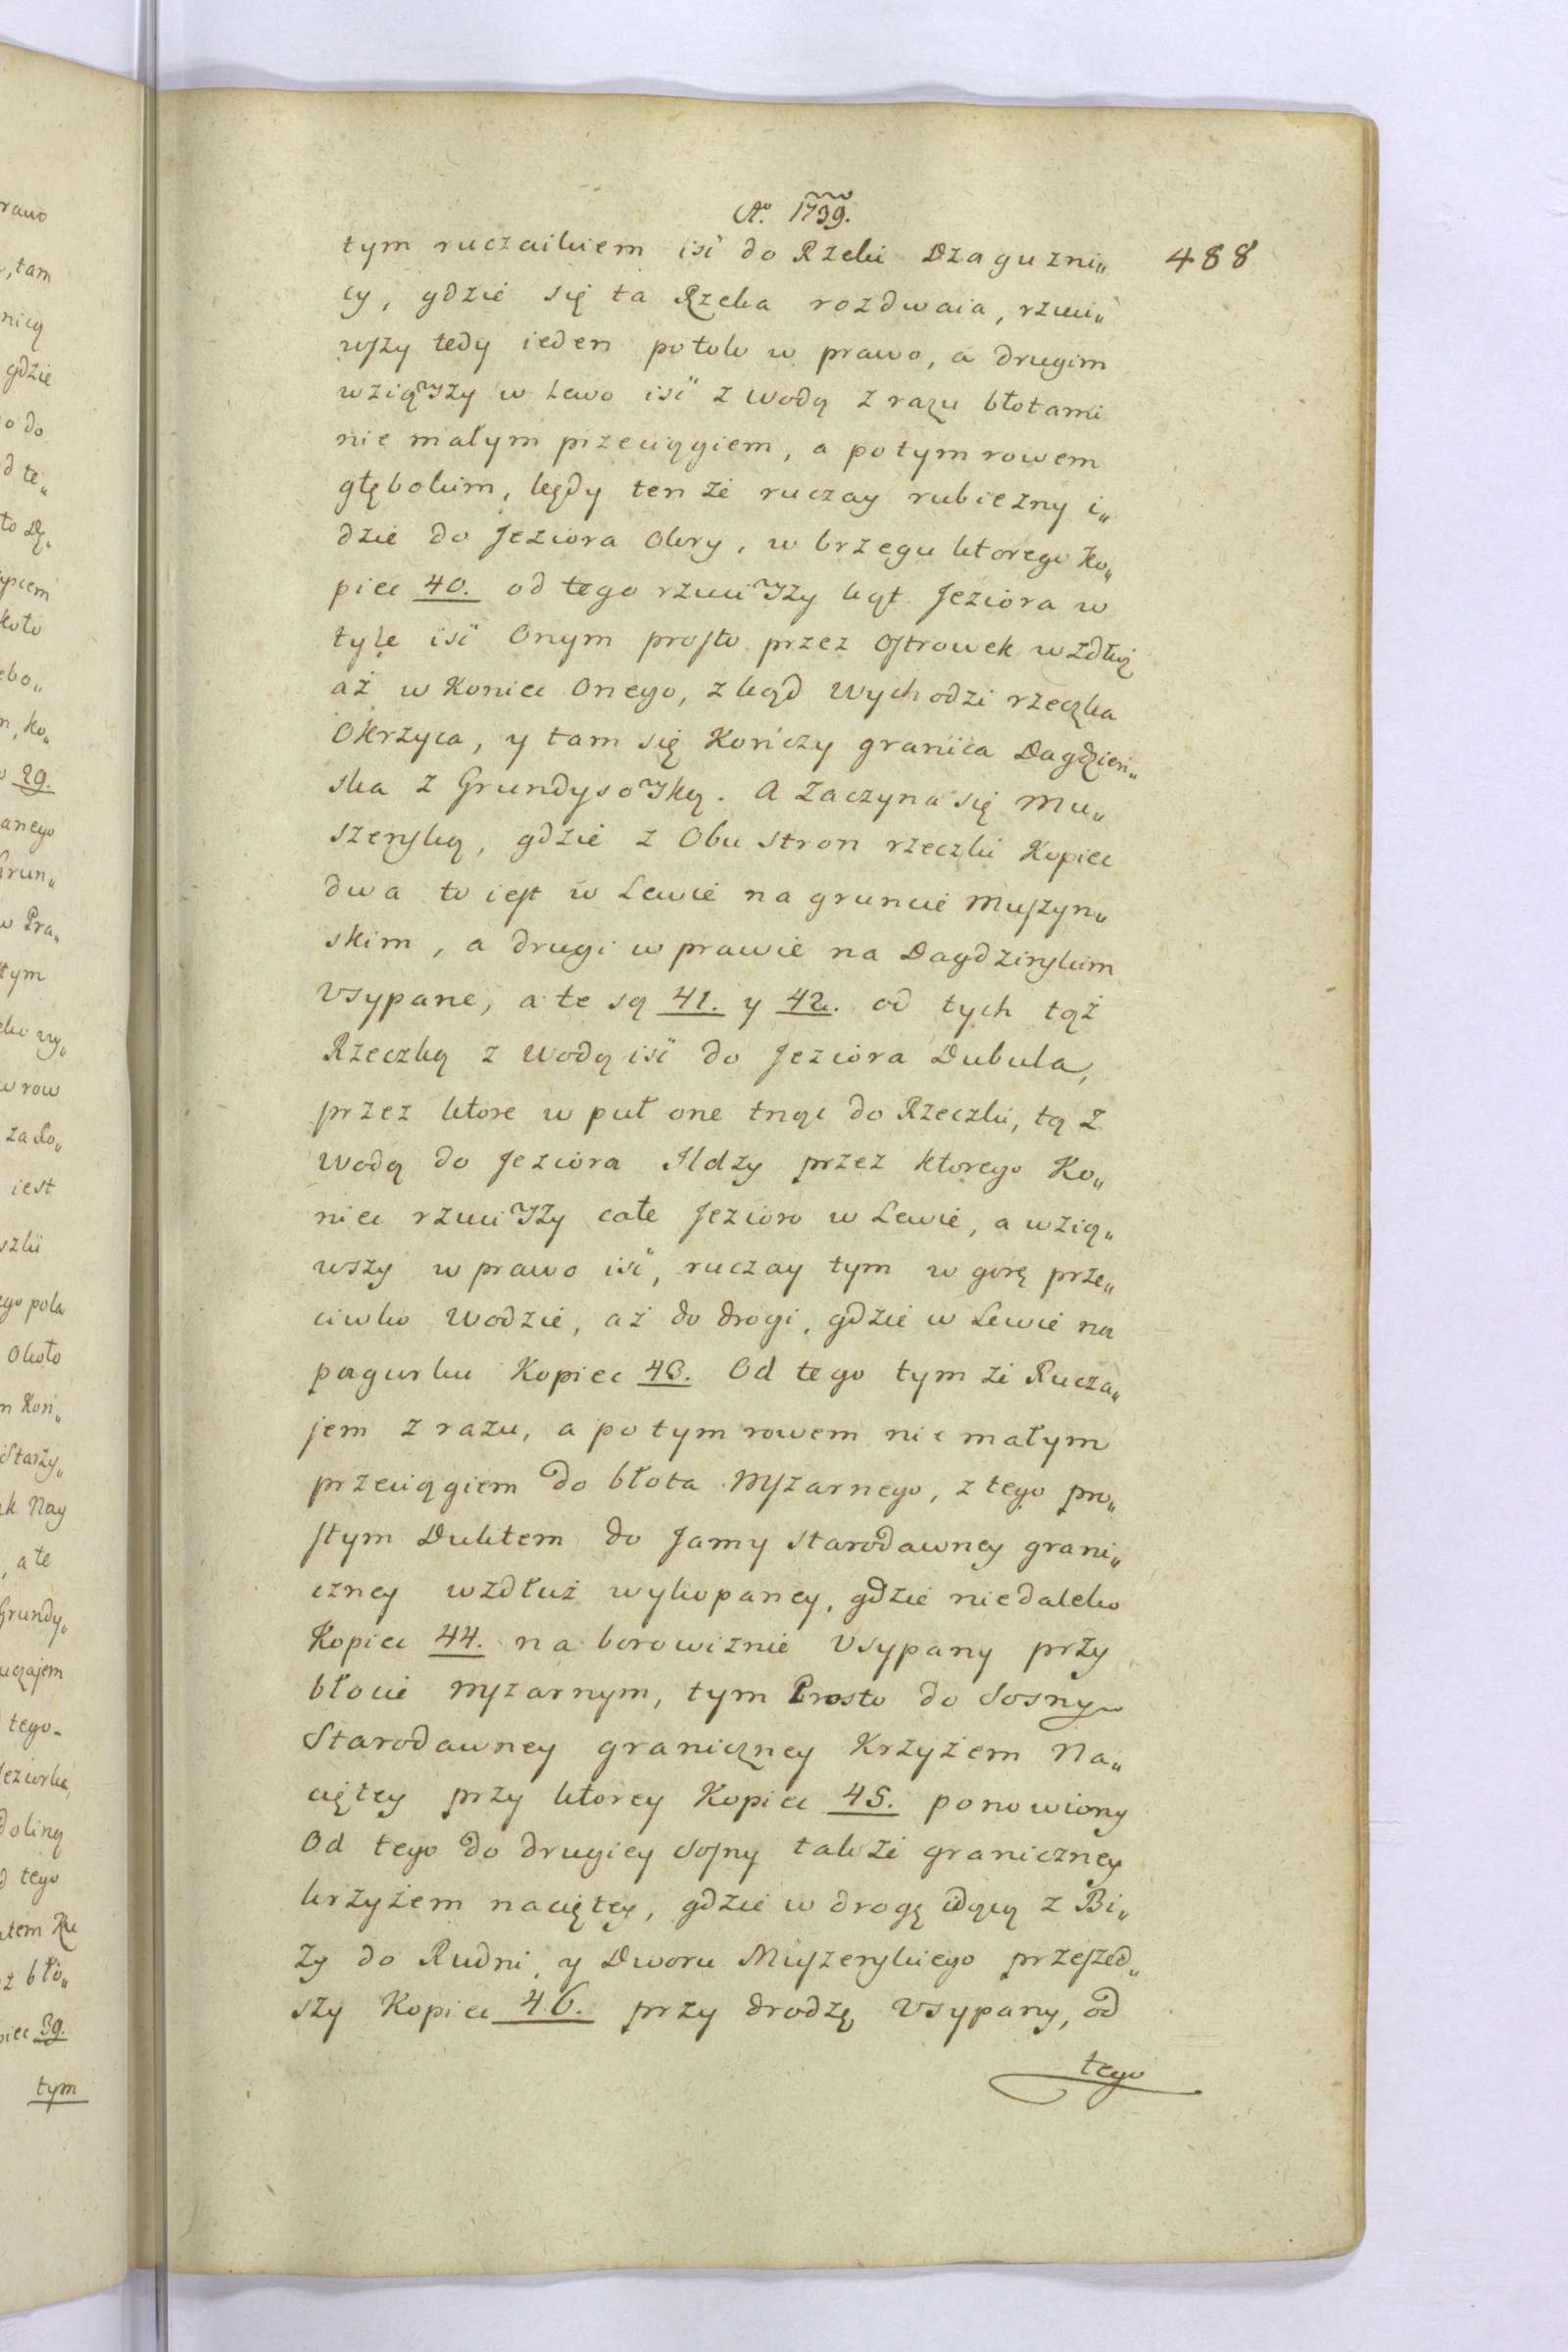 Aº. 1739.
488
tym ruczaikiem isć do Rzeki Dzaguzni„
cy, gdzie się ta Rzeka rozdwaia, rzuci„
wszy tedy ieden potok w prawo, a drugim
wziąwszy w Lewo iść z wodą z razu błotami
nie małym przeciągiem, a potym rowem
głębokim, kędy ten że ruczay rubieżny i„
dzie do Jeziora Okry, w brzegu ktorego Ko„
piec 40. od tego rzuciwszy kąt Jeziora w
tyle iść Onym prosto przez Ostrowek wzdłuż
aż w Koniec Onego, zkąd wychodzi rzeczka
Okrzyca, y tam się Kończy granica Dagdzien„
ska z Grundysowską. A Zaczyna się Mu„
szenską, gdzie z Obu stron rzeczki Kopiec
dwa to iest w Lewie na gruncie Muszyn„
skim, a drugi w prawie na Dagdzinskim
Vsypane, a te są 41. y 42. od tych tąż
Rzeczką z wodą iść do Jeziora Dubula,
przez ktore w puł one tnąc do Rzeczki, tą z
wodą do Jeziora Ildzy przez ktorego Ko„
niec rzuciwszy całe Jezioro w Lewie, a wzią„
wszy w prawo iść, ruczay tym w gorę prze„
ciwko wodzie, aż do drogi, gdzie w Lewie na
pagurku Kopiec 43. Od tego tym że Rucza„
jem z razu, a potym rowem nie małym
przeciągiem do błota Mszarnego, z tego pro„
stym Duktem do Jamy starodawney grani„
czney wzdłuż wykopaney, gdzie niedaleko
Kopiec 44. na borowiznie Vsypany przy
błocie Mszarnym, tym Prosto do Sosny
Starodawney graniczney Krzyżem Na„
ciętey przy ktorey Kopiec 45. ponowiony
Od tego do drugiey Sosny także graniczney
krzyżem naciętey, gdzie w drogę idącą z Bi„
zy do Rudni, y Dworu Muszenskiego przeszed„
szy Kopiec 46. przy drodze Vsypany, od
tego